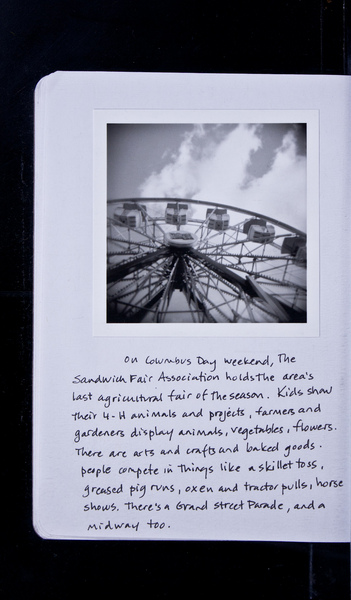 On Columbus Day weekend, The
Sandwich Fair Association holds the area's
last agricultural fair of the season. Kids show
their 4-H animals and projects, farmers and
gardeners display animals, vegetables, flowers.
There are arts and crafts and baked goods.
people compete in things like a skillet toss,
greased pig runs, oxen and tractor pulls, horse
shows. There's a Grand Street Parade, and a
midway too.